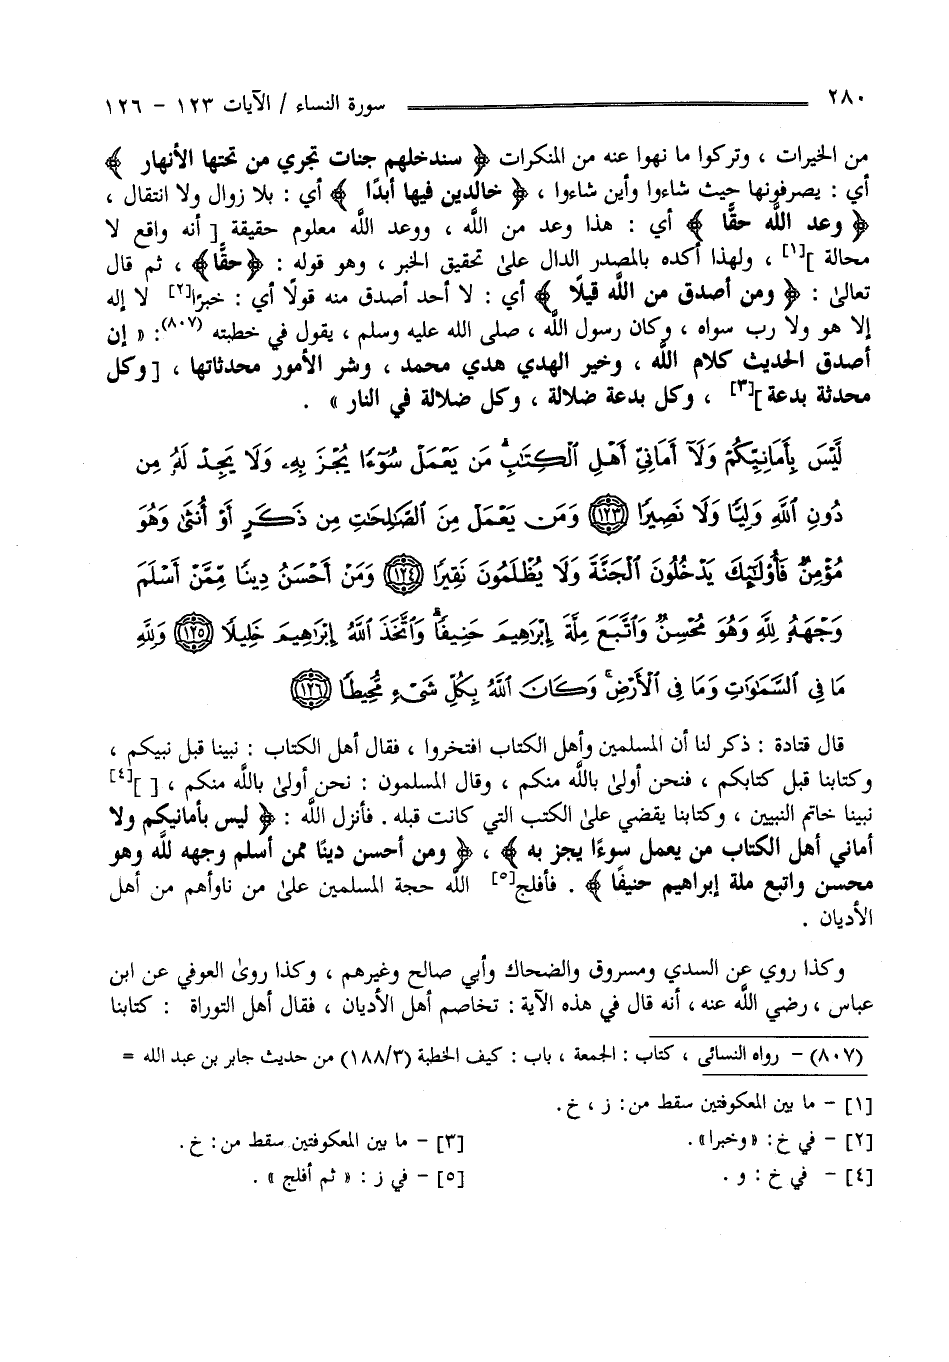 ٢٨٠ سورة النساء / الآيات ١٢٣ - ١٢٦
من الخيرات ، وتركوا ما نهوا عنه من المنكرات ﴿ سندخلهم جنات تجري من تحتها الأنهار ﴾
أي : يصرفونها حيث شاءوا وأين شاءوا ، ﴿ خالدين فيها أبدًا ﴾ أي : بلا زوال ولا انتقال ،
﴿ وعد الله حقًّا ﴾ أي : هذا وعد من الله ، ووعد الله معلوم حقيقة [ أنه واقع لا
محالة ][١] ، ولهذا أكده بالمصدر الدال على تحقيق الخبر ، وهو قوله : ﴿حقًّا﴾ ، ثم قال
تعالى : ﴿ ومن أصدق من الله قيلًا ﴾ أي : لا أحد أصدق منه قولًا أي : خبرًا[٢] لا إله
إلا هو ولا رب سواه ، وكان رسول الله ، صلى الله عليه وسلم ، يقول في خطبته (٨٠٧): « إن
أصدق الحديث كلام الله ، وخير الهدي هدي محمد ، وشر الأمور محدثاتها ، [وكل
محدثة بدعة][٣] ، وكل بدعة ضلالة ، وكل ضلالة في النار » .
لَّيْسَ بِأَمَانِيِّكُمْ وَلَآ أَمَانِيِّ أَهْلِ ٱلْكِتَٰبِۗ مَن يَعْمَلْ سُوٓءًا يُجْزَ بِهِۦ وَلَا يَجِدْ لَهُۥ مِن
دُونِ ٱللَّهِ وَلِيًّا وَلَا نَصِيرًا ١٢٣ وَمَن يَعْمَلْ مِنَ ٱلصَّٰلِحَٰتِ مِن ذَكَرٍ أَوْ أُنثَىٰ وَهُوَ
مُؤْمِنٌ فَأُو۟لَٰٓئِكَ يَدْخُلُونَ ٱلْجَنَّةَ وَلَا يُظْلَمُونَ نَقِيرًا ١٢٤ وَمَنْ أَحْسَنُ دِينًا مِّمَّنْ أَسْلَمَ
وَجْهَهُۥ لِلَّهِ وَهُوَ مُحْسِنٌ وَٱتَّبَعَ مِلَّةَ إِبْرَٰهِيمَ حَنِيفًاۗ وَٱتَّخَذَ ٱللَّهُ إِبْرَٰهِيمَ خَلِيلًا ١٢٥ وَلِلَّهِ
مَا فِى ٱلسَّمَٰوَٰتِ وَمَا فِى ٱلْأَرْضِۚ وَكَانَ ٱللَّهُ بِكُلِّ شَىْءٍ مُّحِيطًا ١٢٦
قال قتادة : ذكر لنا أن المسلمين وأهل الكتاب افتخروا ، فقال أهل الكتاب : نبينا قبل نبيكم ،
وكتابنا قبل كتابكم ، فنحن أولى بالله منكم ، وقال المسلمون : نحن أولى بالله منكم ، [ ][٤]
نبينا خاتم النبيين ، وكتابنا يقضي على الكتب التي كانت قبله . فأنزل الله : ﴿ ليس بأمانيكم ولا
أماني أهل الكتاب من يعمل سوءًا يجز به ﴾ ، ﴿ ومن أحسن دينًا ممن أسلم وجهه لله وهو
محسن واتبع ملة إبراهيم حنيفًا ﴾ . فأفلج[٥] الله حجة المسلمين على من ناوأهم من أهل
الأديان .
وكذا روي عن السدي ومسروق والضحاك وأبي صالح وغيرهم ، وكذا روى العوفي عن ابن
عباس ، رضي الله عنه ، أنه قال في هذه الآية : تخاصم أهل الأديان ، فقال أهل التوراة : كتابنا
(٨٠٧) - رواه النسائى ، كتاب : الجمعة ، باب : كيف الخطبة (١٨٨/٣) من حديث جابر بن عبد الله =
[١] - ما بين المعكوفتين سقط من: ز ، خ.
[٢] - في خ: «وخبرا». [٣] - ما بين المعكوفتين سقط من: خ.
[٤] - في خ : و . [٥] - في ز : « ثم أفلج » .